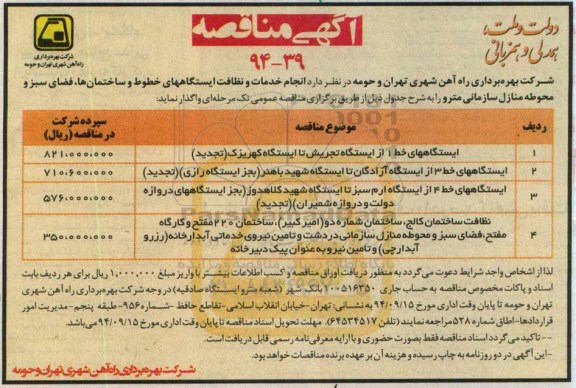 دولت و ملت، همدلی و همزبانی
آگهی مناقصه
۹۴-۳۹
شرکت بهره‌برداری
راه آهن شهری تهران و حومه
شرکت بهره‌برداری راه آهن شهری تهران و حومه در نظر دارد انجام خدمات و نظافت ایستگاههای خطوط و ساختمان‌ها، فضای سبز و
محوطه منازل سازمانی مترو را به شرح جدول ذیل از طریق برگزاری مناقصه عمومی تک مرحله‌ای واگذار نماید:
ردیف موضوع مناقصه سپرده شرکت در مناقصه (ریال)
۱ ایستگاههای خط ۱ از ایستگاه تجریش تا ایستگاه کهریزک (تجدید) ۸۲۱۰۰۰۰۰۰
۲ ایستگاههای خط ۳ از ایستگاه آزادگان تا ایستگاه شهید باهنر (بجز ایستگاه رازی) (تجدید) ۷۱۰۶۰۰۰۰۰
۳ ایستگاههای خط ۴ از ایستگاه ارم سبز تا ایستگاه شهید کلاهدوز (بجز ایستگاههای دروازه
دولت و دروازه شمیران) (تجدید) ۵۷۶۰۰۰۰۰۰
۴ نظافت ساختمان کالج، ساختمان شماره دو (امیر کبیر)، ساختمان ۲۲۰ مفتح و کارگاه
مفتح، فضای سبز و محوطه منازل سازمانی دردشت و تامین نیروی خدماتی آبدارخانه (رزرو
آبدارچی) و تامین نیرو به عنوان پیک دبیرخانه ۳۵۰۰۰۰۰۰۰
لذا از اشخاص واجد شرایط دعوت می‌گردد به منظور دریافت اوراق مناقصه و کسب اطلاعات بیشتر با واریز مبلغ ۱,۰۰۰,۰۰۰ ریال برای هر ردیف بابت
اسناد و پاکات مخصوص مناقصه به حساب جاری ۱۰۰۵۱۶۳۵۰ بانک شهر (شعبه مترو ایستگاه صادقیه) در وجه شرکت بهره‌برداری راه آهن شهری
تهران و حومه تا پایان وقت اداری مورخ ۹۴/۰۹/۱۵ به نشانی: تهران-خیابان انقلاب اسلامی-تقاطع حافظ -شماره ۹۵۶-طبقه پنجم-مدیریت امور
قراردادها-اطاق شماره ۵۲۸ مراجعه نمایند (تلفن ۶۴۵۳۴۵۱۷). مهلت تحویل اسناد مناقصه تا پایان وقت اداری مورخ ۹۴/۰۹/۱۵ می‌باشد.
-تاکید می‌گردد اسناد مناقصه فقط بصورت حضوری و با ارایه معرفی‌نامه رسمی قابل دریافت است.
-این آگهی در دو روزنامه به چاپ رسیده و هزینه آن بر عهده برنده مناقصات خواهد بود.
شرکت بهره‌برداری راه آهن شهری تهران و حومه